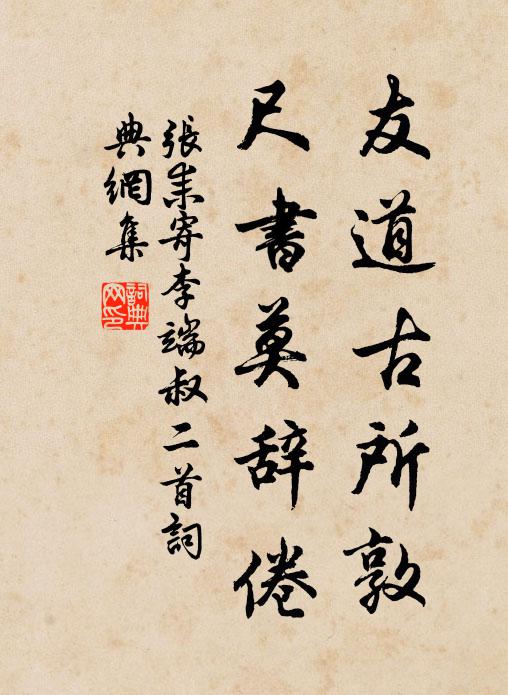 友道古所敦
尺書莫辭倦
張耒寄李端叔二首詞
典網集
詞典網印